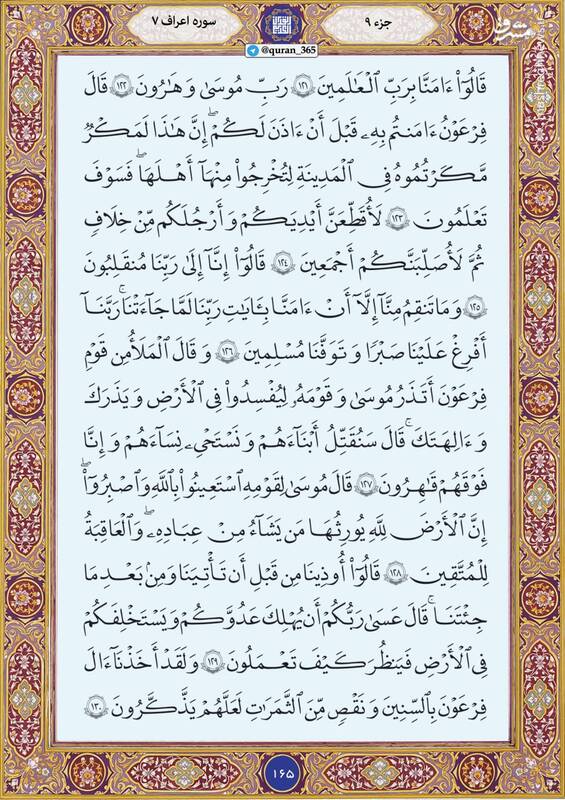 جزء ۹
سوره اعراف ۷
@quran_365
قَالُوٓا۟ ءَامَنَّا بِرَبِّ ٱلْعَٰلَمِينَ ﴿۱۲۱﴾ رَبِّ مُوسَىٰ وَ هَٰرُونَ ﴿۱۲۲﴾ قَالَ
فِرْعَوْنُ ءَامَنتُم بِهِۦ قَبْلَ أَنْ ءَاذَنَ لَكُمْ ۖ إِنَّ هَٰذَا لَمَكْرٌ
مَّكَرْتُمُوهُ فِى ٱلْمَدِينَةِ لِتُخْرِجُوا۟ مِنْهَآ أَهْلَهَا ۖ فَسَوْفَ
تَعْلَمُونَ ﴿۱۲۳﴾ لَأُقَطِّعَنَّ أَيْدِيَكُمْ وَ أَرْجُلَكُم مِّنْ خِلَافٍ
ثُمَّ لَأُصَلِّبَنَّكُمْ أَجْمَعِينَ ﴿۱۲۴﴾ قَالُوٓا۟ إِنَّآ إِلَىٰ رَبِّنَا مُنقَلِبُونَ
﴿۱۲۵﴾ وَ مَا تَنقِمُ مِنَّآ إِلَّآ أَنْ ءَامَنَّا بِـَٔايَٰتِ رَبِّنَا لَمَّا جَآءَتْنَا ۚ رَبَّنَآ
أَفْرِغْ عَلَيْنَا صَبْرًا وَ تَوَفَّنَا مُسْلِمِينَ ﴿۱۲۶﴾ وَ قَالَ ٱلْمَلَأُ مِن قَوْمِ
فِرْعَوْنَ أَتَذَرُ مُوسَىٰ وَ قَوْمَهُۥ لِيُفْسِدُوا۟ فِى ٱلْأَرْضِ وَ يَذَرَكَ
وَ ءَالِهَتَكَ ۚ قَالَ سَنُقَتِّلُ أَبْنَآءَهُمْ وَ نَسْتَحْىِۦ نِسَآءَهُمْ وَ إِنَّا
فَوْقَهُمْ قَٰهِرُونَ ﴿۱۲۷﴾ قَالَ مُوسَىٰ لِقَوْمِهِ ٱسْتَعِينُوا۟ بِٱللَّهِ وَ ٱصْبِرُوٓا۟ ۖ
إِنَّ ٱلْأَرْضَ لِلَّهِ يُورِثُهَا مَن يَشَآءُ مِنْ عِبَادِهِۦ ۖ وَ ٱلْعَٰقِبَةُ
لِلْمُتَّقِينَ ﴿۱۲۸﴾ قَالُوٓا۟ أُوذِينَا مِن قَبْلِ أَن تَأْتِيَنَا وَ مِنۢ بَعْدِ مَا
جِئْتَنَا ۚ قَالَ عَسَىٰ رَبُّكُمْ أَن يُهْلِكَ عَدُوَّكُمْ وَ يَسْتَخْلِفَكُمْ
فِى ٱلْأَرْضِ فَيَنظُرَ كَيْفَ تَعْمَلُونَ ﴿۱۲۹﴾ وَ لَقَدْ أَخَذْنَآ ءَالَ
فِرْعَوْنَ بِٱلسِّنِينَ وَ نَقْصٍ مِّنَ ٱلثَّمَرَٰتِ لَعَلَّهُمْ يَذَّكَّرُونَ ﴿۱۳۰﴾
۱۶۵